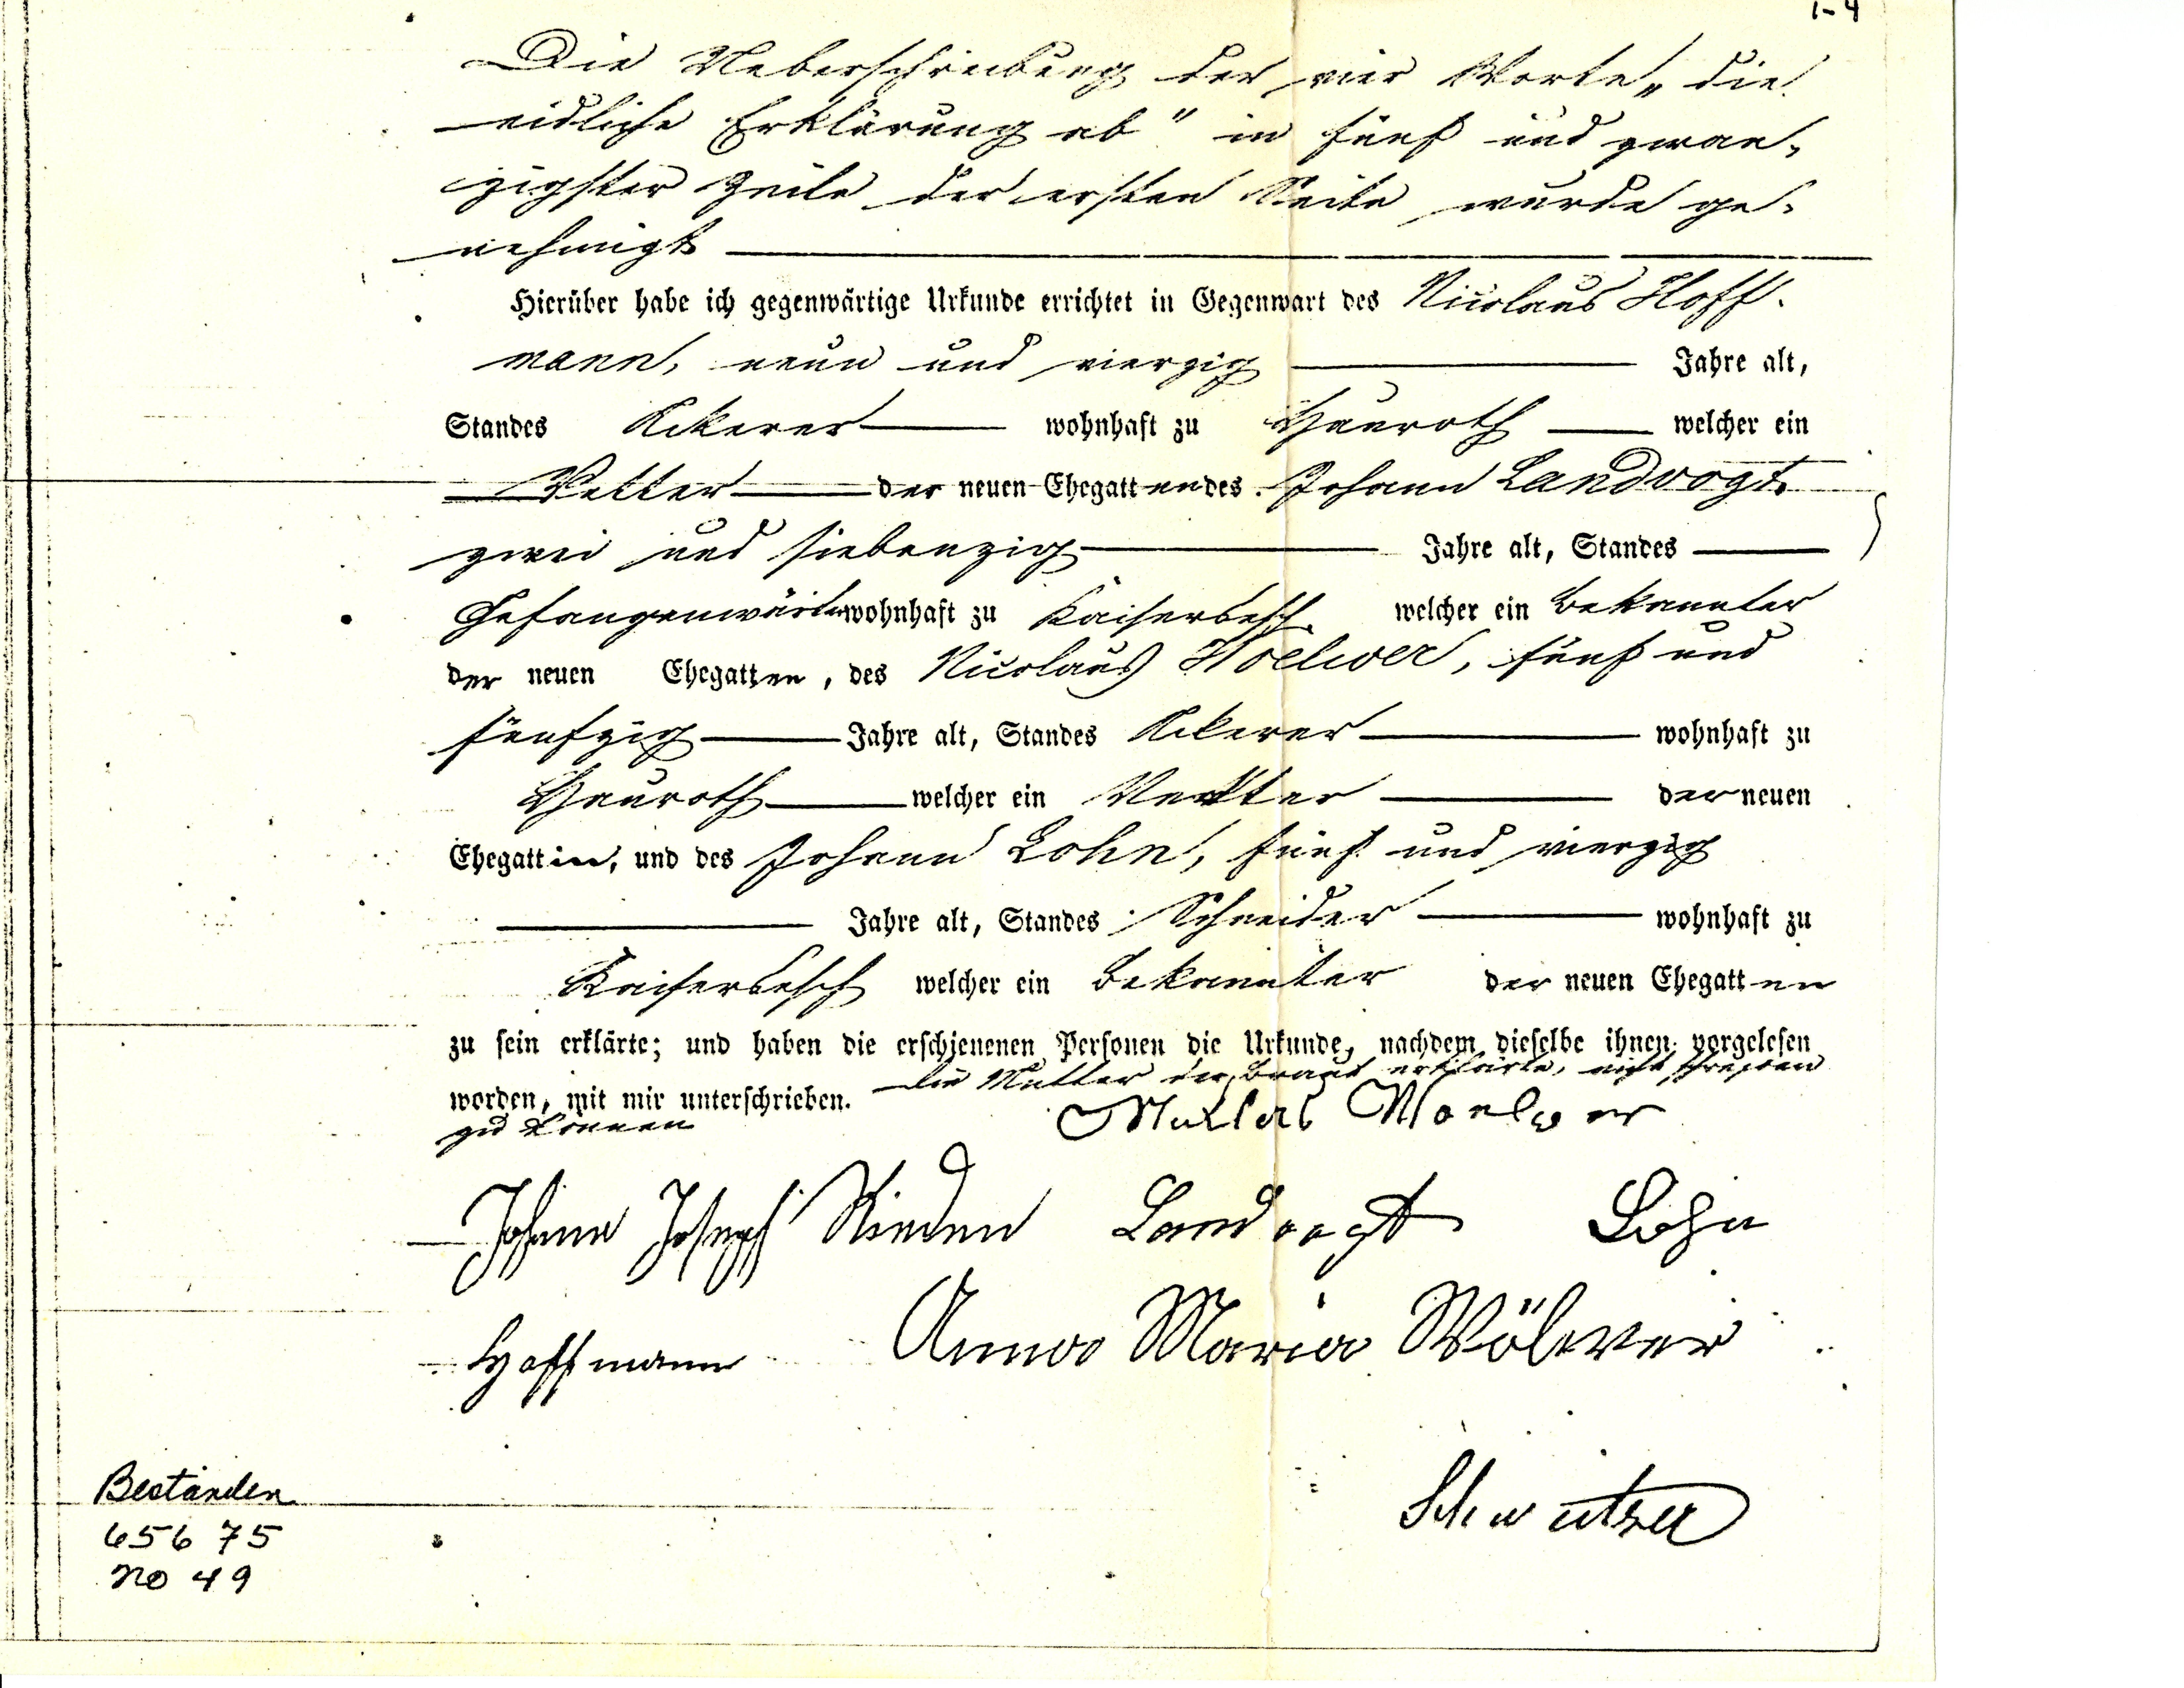 1-4
Die Ueberschreibung der vier Worte „die
eidliche Erklärung ab" in fünf und zwan-
zigster Zeile der ersten Seite wurde ge-
nehmigt
Hierüber habe ich gegenwärtige Urkunde errichtet in Gegenwart des Nicolaus Hoff-
mann, neun und vierzig Jahre alt,
Standes Ackerer wohnhaft zu Hauroth welcher ein
Vetter der neuen Ehegatten des Johann Landvogt
zwei und siebenzig Jahre alt, Standes
Gefangenwärter wohnhaft zu Kaisersesch welcher ein Bekannter
der neuen Ehegatten, des Nicolaus Woelwer, fünf und
fünfzig Jahre alt, Standes Ackerer wohnhaft zu
Hauroth welcher ein Vetter der neuen
Ehegattin, und des Johann Lohn, fünf und vierzig
Jahre alt, Standes Schneider wohnhaft zu
Kaisersesch welcher ein Bekannter der neuen Ehegatten
zu sein erklärte; und haben die erschienenen Personen die Urkunde, nachdem dieselbe ihnen vorgelesen
worden, mit mir unterschrieben. Die Mutter der Braut erklärte, nicht schreiben
zu können
Woelwer
Johann Joseph Landvogt Lohn
Hoffmann Anna Maria Wölwer
Bestanden
656 75
no 49